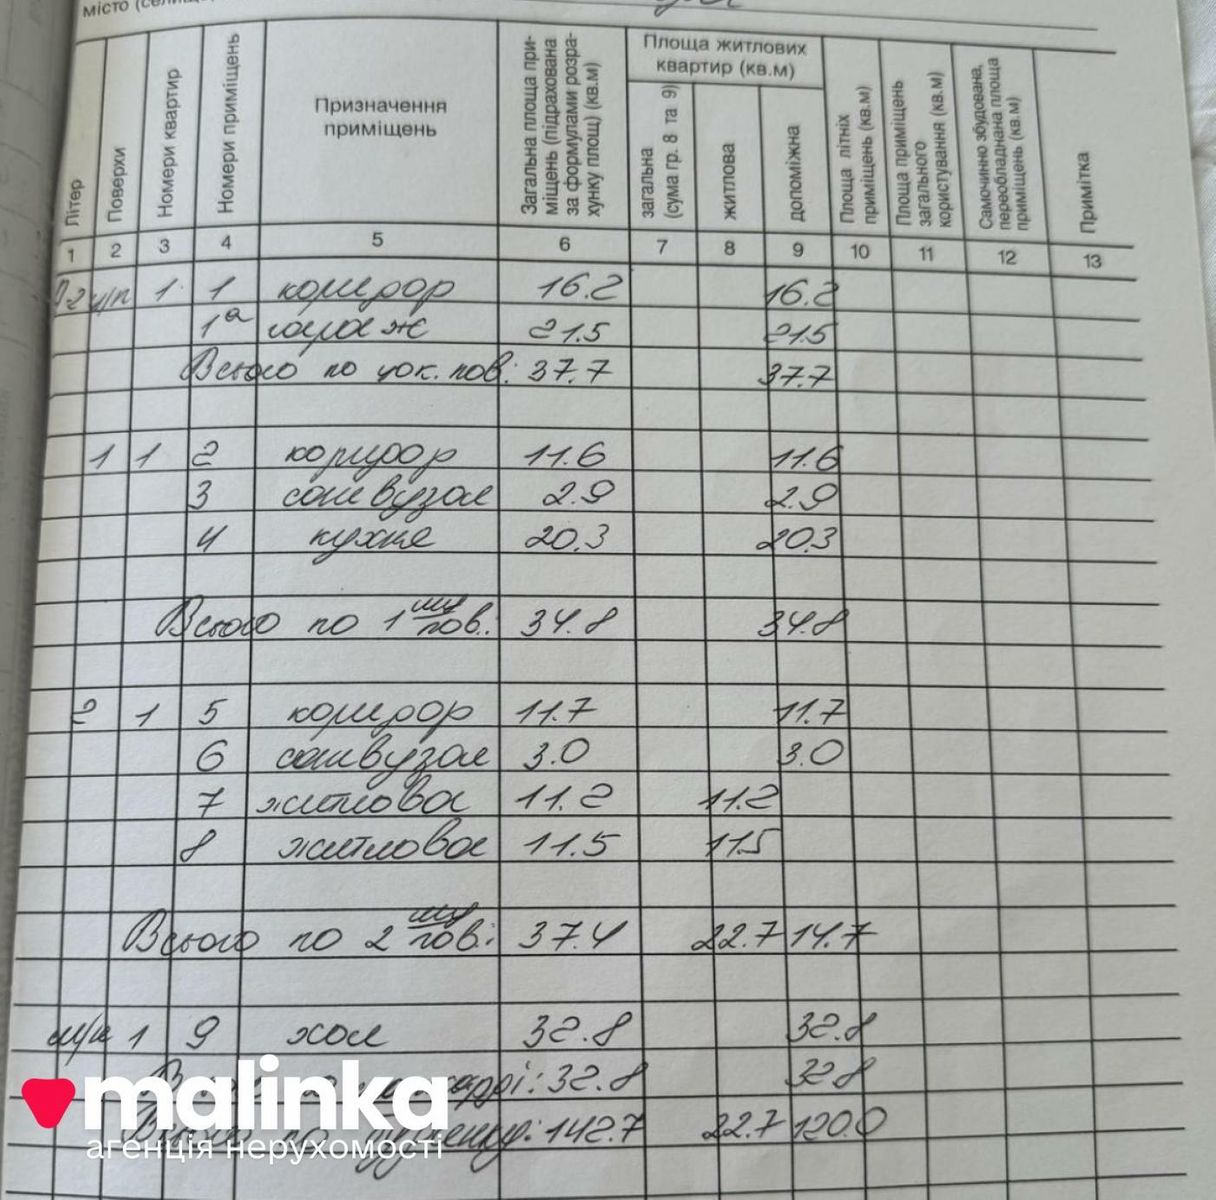 місто
Літер
Поверхи
Номери квартир
Номери приміщень
Призначення приміщень
Загальна площа приміщень (підрахована за формулами розрахунку площ) (кв.м)
Площа житлових квартир (кв.м)
загальна (сума гр. 8 та 9)
житлова
допоміжна
Площа літніх приміщень (кв.м)
Площа приміщень загального користування (кв.м)
Самочинно збудована, переобладнана площа приміщень (кв.м)
Примітка
1 2 3 4 5 6 7 8 9 10 11 12 13
ц/п 1 1 коридор 16.2 16.2
1а гараж 21.5 21.5
Всього по цок. пов: 37.7 37.7
1 1 2 коридор 11.6 11.6
3 санвузол 2.9 2.9
4 кухня 20.3 20.3
Всього по 1му пов.: 34.8 34.8
2 1 5 коридор 11.7 11.7
6 санвузол 3.0 3.0
7 житлова 11.2 11.2
8 житлова 11.5 11.5
Всього по 2му пов: 37.4 22.7 14.7
1 9 хол 32.8 32.8
32.8 32.8
142.7 22.7 120.0
malinka
агенція нерухомості